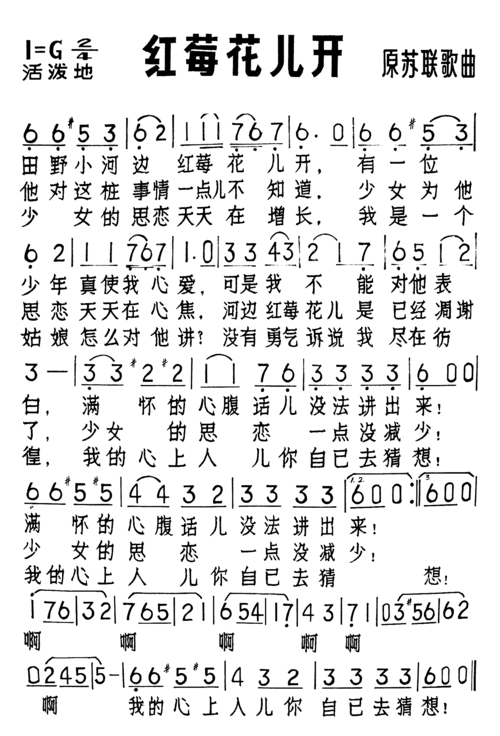 1=G 2/4 红莓花儿开 原苏联歌曲
活泼地
6 6 #5 3 | 6 2 | 1 1 1 | 1 7 6 7 | 6· 0 | 6 6 | #5 3 |
田野小河边 红莓花儿开，有一位
他对这桩事情一点儿不知道，少女为他
少女的思恋天天在增长，我是一个
6 2 | 1 1 | 7 6 7 | 1·0 | 3 3 | 4 3 | 2 1 7 | 6 5 1 |
少年真使我心爱，可是我不能对他表
思恋天天在心焦，河边红莓花儿是已经凋谢
姑娘怎么对他讲？没有勇气诉说我尽在彷
3 — | 3 3 #2 #2 | 1 1 7 6 | 3 3 3 3 | 6 0 0 |
白，满怀的心腹话儿没法讲出来！
了，少女的思恋一点没减少！
徨，我的心上人儿你自己去猜想！
6 6 #5 #5 | 4 4 3 2 | 3 3 3 3 | 1.2. 6 0 0 :‖ 3. 6 0 0 |
满怀的心腹话儿没法讲出来！
少女的思恋一点没减少！
我的心上人儿你自己去猜想！
1 7 6 | 3 2 | 7 6 5 | 2 1 | 6 5 4 | 1 7 | 4 3 | 3 | 0 3 #5 6 | 6 2 |
啊 啊 啊 啊啊
0 2 4 5 | 5 - | 6 6 #5 #5 | 4 4 3 2 | 3 3 3 3 | 6 0 0 ‖
啊 我的心上人儿你自己去猜想！